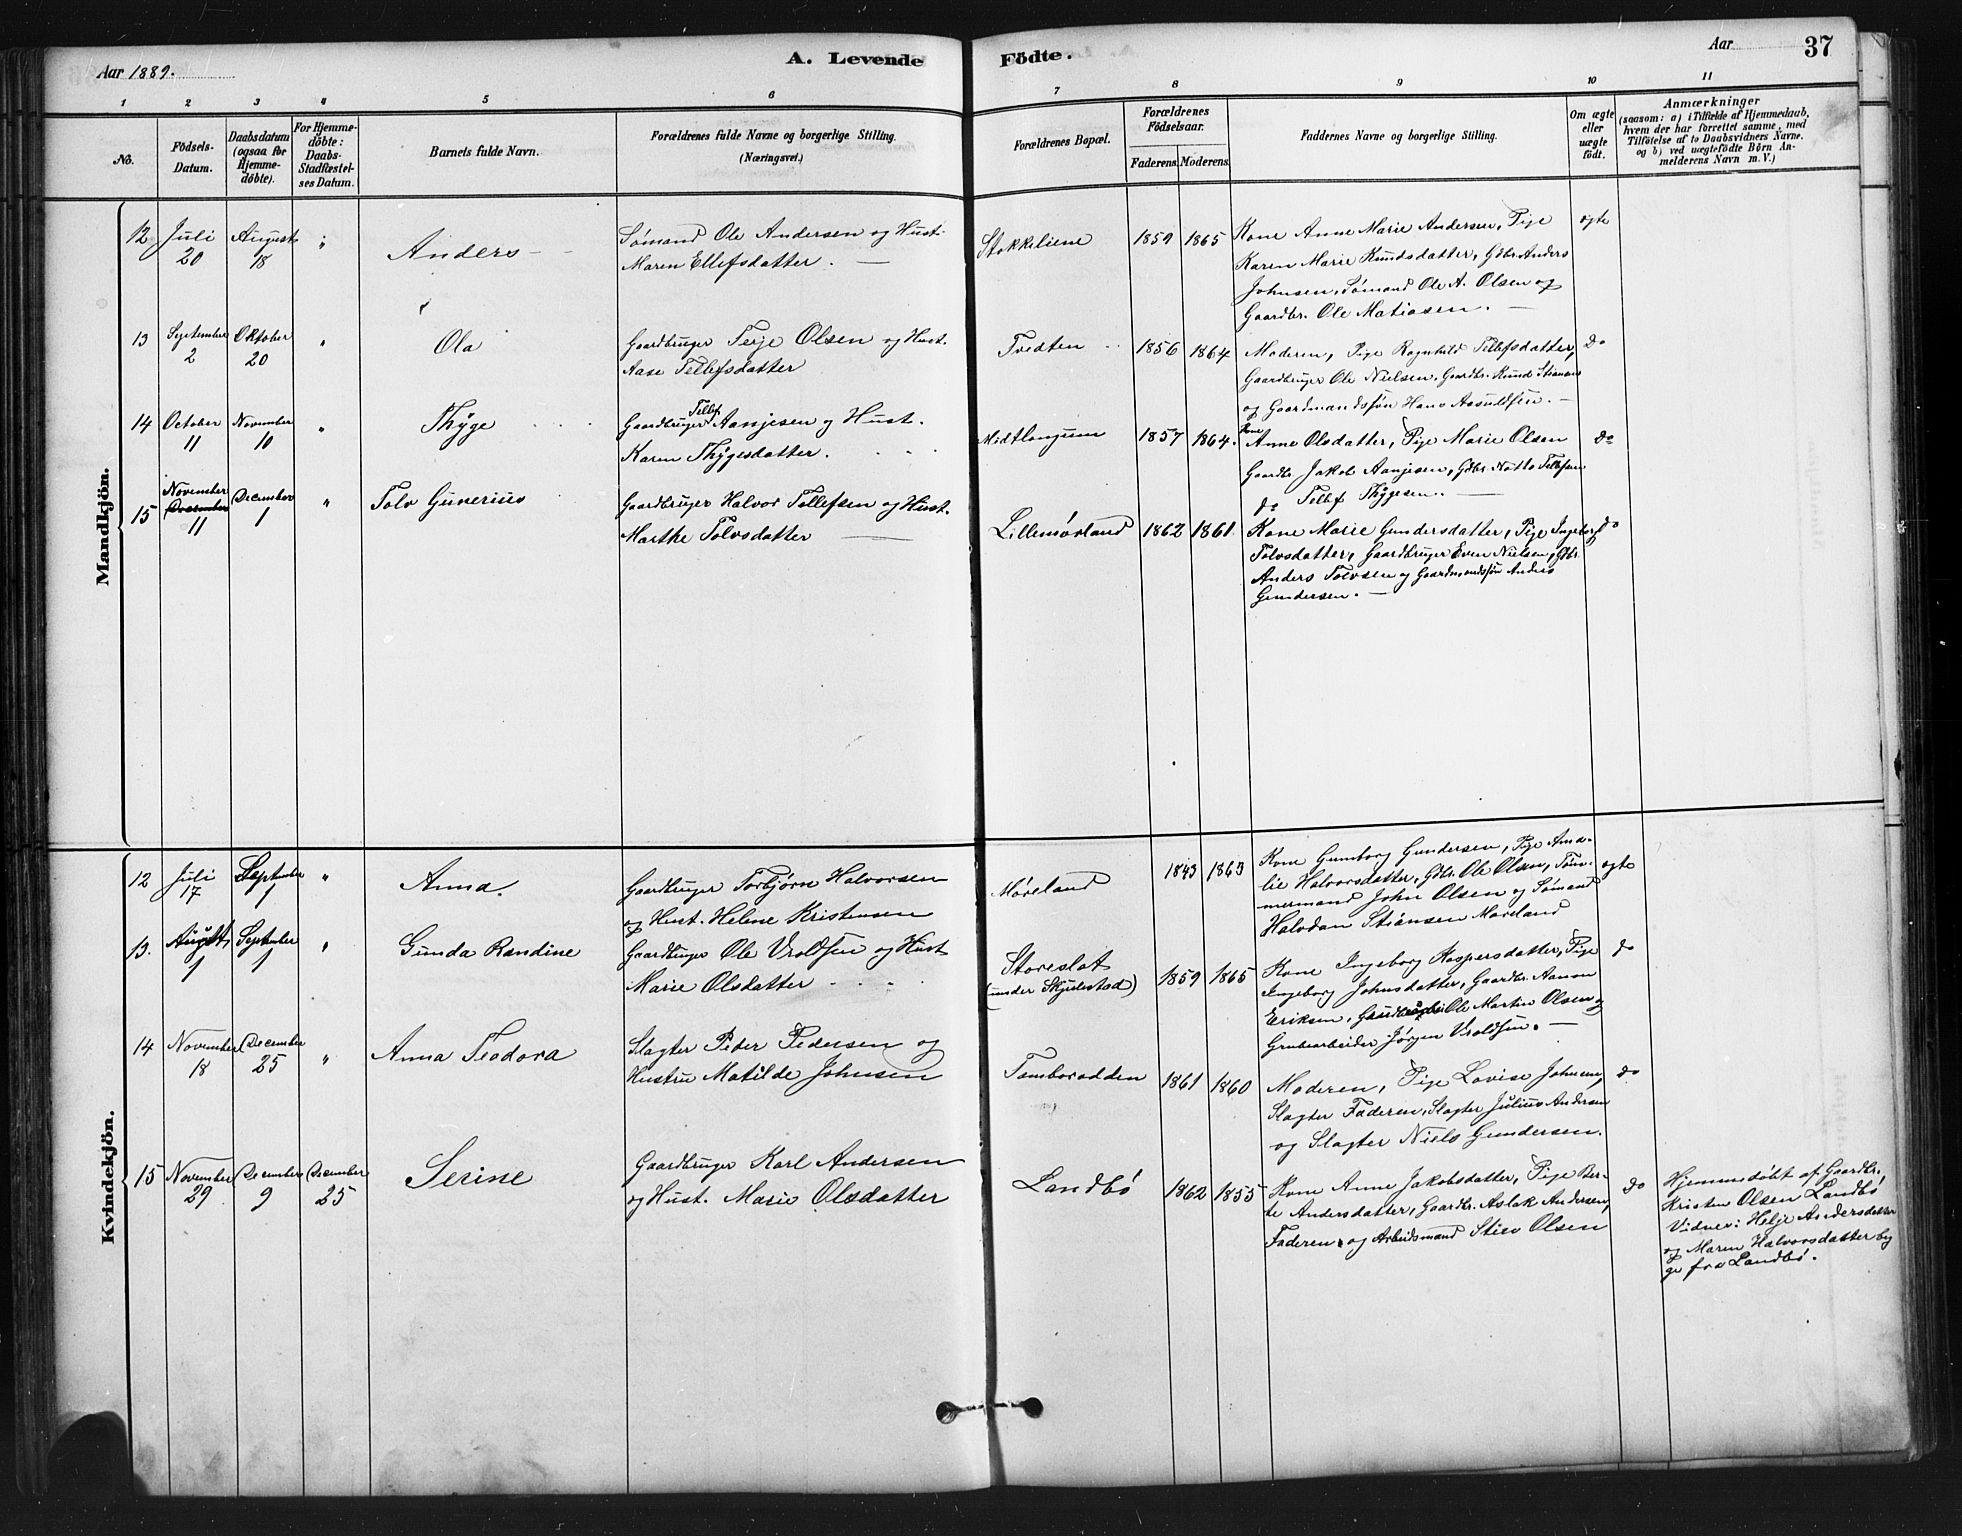 Aar 1889.
A. Levende Födte.
Aar
37
1 2 3 4 5 6 7 8 9 10 11
No.
Födsels-
Datum.
Daabsdatum
(ogsaa for
Hjemme-
döbte).
For Hjemme-
döbte:
Daabs-
Stadfæstel-
ses Datum.
Barnets fulde Navn.
Forældrenes fulde Navne og borgerlige Stilling.
(Næringsvei.)
Forældrenes Bopæl.
Forældrenes
Födselsaar.
Faderens. Moderens.
Faddernes Navne og borgerlige Stilling.
Om ægte
eller
uægte
födt.
Anmærkninger
(saasom: a) i Tilfælde af Hjemmedaab,
hvem der har forrettet samme, med
Tilföielse af to Daabsvidners Navne.
og b) ved uægtefödte Börn An-
melderens Navn m. V.)
Mandkjön.
12 Juli 20 August 18 " Anders
Sømand Ole Andersen og Hust.
Maren Ellefsdatter.
Stokkeliene 1859 1865
Kone Anne Marie Andersen, Pige
Karen Marie Knudsdatter, Gdbr. Anders
Johnsen, Sømand Ole A. Olsen og
Gaardbr. Ole Matiasen.
ægte
13 September 2 Oktober 20 " Ola
Gaardbruger Terje Olsen og Hust.
Aase Tellefsdatter
Tvedten 1856 1864
Moderen, Pige Ragnhild Tellefsdatter,
Gaardbruger Ole Nielsen, Gaardbr. Knud Stianen
og Gaardmandssøn Hans Asuldsen.
do
14 October 11 November 10 " Thyge
Gaardbruger Tellef Aanjesen og Hust.
Karen Thygesdatter.
Midtlongum 1857 1864.
Kone Anne Olsdatter, Pige Marie Olsen
Gaardbr. Jakob Aanjesen, Gdbr. Notto Tellefsen
do Tellef Thygesen.
do
15 November December 11 December 1 " Tolv Gunerius
Gaardbruger Halvor Tellefsen og Hust.
Marthe Tolvsdatter
Lillemørland 1862 1861
Kone Marie Gundersdatter, Pige Ingeborg
Tolvsdatter, Gaardbruger Even Nielsen, Gdbr.
Anders Tolvsen og Gaardmandssøn Anders
Gundersen.
do
Kvindekjön.
12 Juli 17 September 1 " Anna.
Gaardbruger Torbjørn Halvorsen
og Hust. Helene Kristensen
Møreland 1843 1863
Kone Gunborg Gundersen, Pige Ama-
lie Halvorsdatter, Gdbr. Ole Olsen, Tøm-
mermand John Olsen og Sømand
Halvdan Stiansen Møreland
ægte
13. August 1 September 1 " Gunda Randine
Gaardbruger Ole Vroldsen og Hust
Marie Olsdatter
Storeslot
(under Skjulestad) 1859 1865
Kone Ingeborg Kaspersdatter, Pige
Ingeborg Johnsdatter, Gaardbr. Aanon
Eriksen, Gaardbruger Ole Martin Olsen og
Grubearbeider Jørgen Vroldsen.
do
14 November 18 December 25 " Anna Teodora
Slagter Peder Pedersen og
Hustru Matilde Johnsen
Tamborodden 1861 1860
Moderen, Pige Lovise Johnsen,
Slagter Faderen, Slagter Julius Andersen
og Slagter Niels Gundersen.
do
15 November 29 December 9 December 25 Serine
Gaardbruger Karl Andersen
og Hust. Marie Olsdatter
Landbø 1862 1855
Kone Anne Jakobsdatter, Pige Ber-
te Andersdatter, Gaardbr. Aslak Andersen,
Faderen og Arbeidsmand Stiev Olsen
do
Hjemmedøbt af Gaardbr.
Kristen Olsen Landbø
Vidner: Helje Andersdatter
og Maren Halvorsdatter beg
ge fra Landbø.